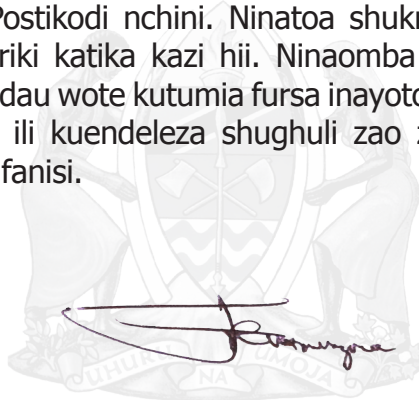 Postikodi nchini. Ninatoa shukr
riki katika kazi hii. Ninaomba
dau wote kutumia fursa inayoto
ili kuendeleza shughuli zao z
fanisi.
UHURU NA UMOJA